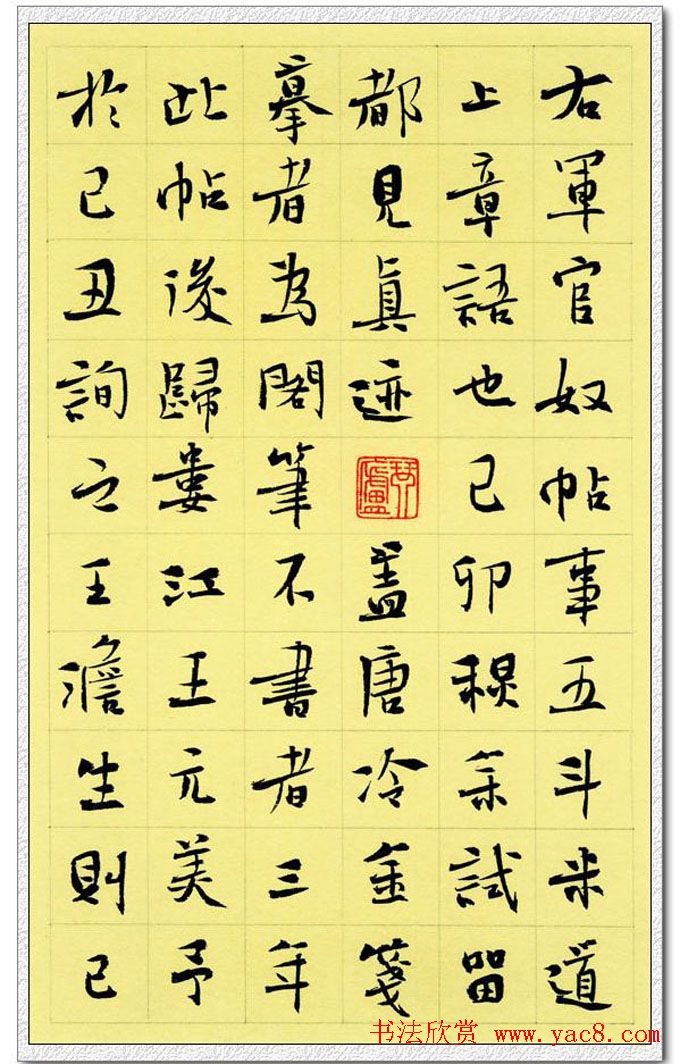 右軍官奴帖事五斗米道
上章語也己卯穐余試留
都見眞迹蓋唐冷金箋
摹者為閣筆不書者三年
此帖後歸婁江王元美予
於己丑詢之王澹生則已
书法欣赏 www.yac8.com